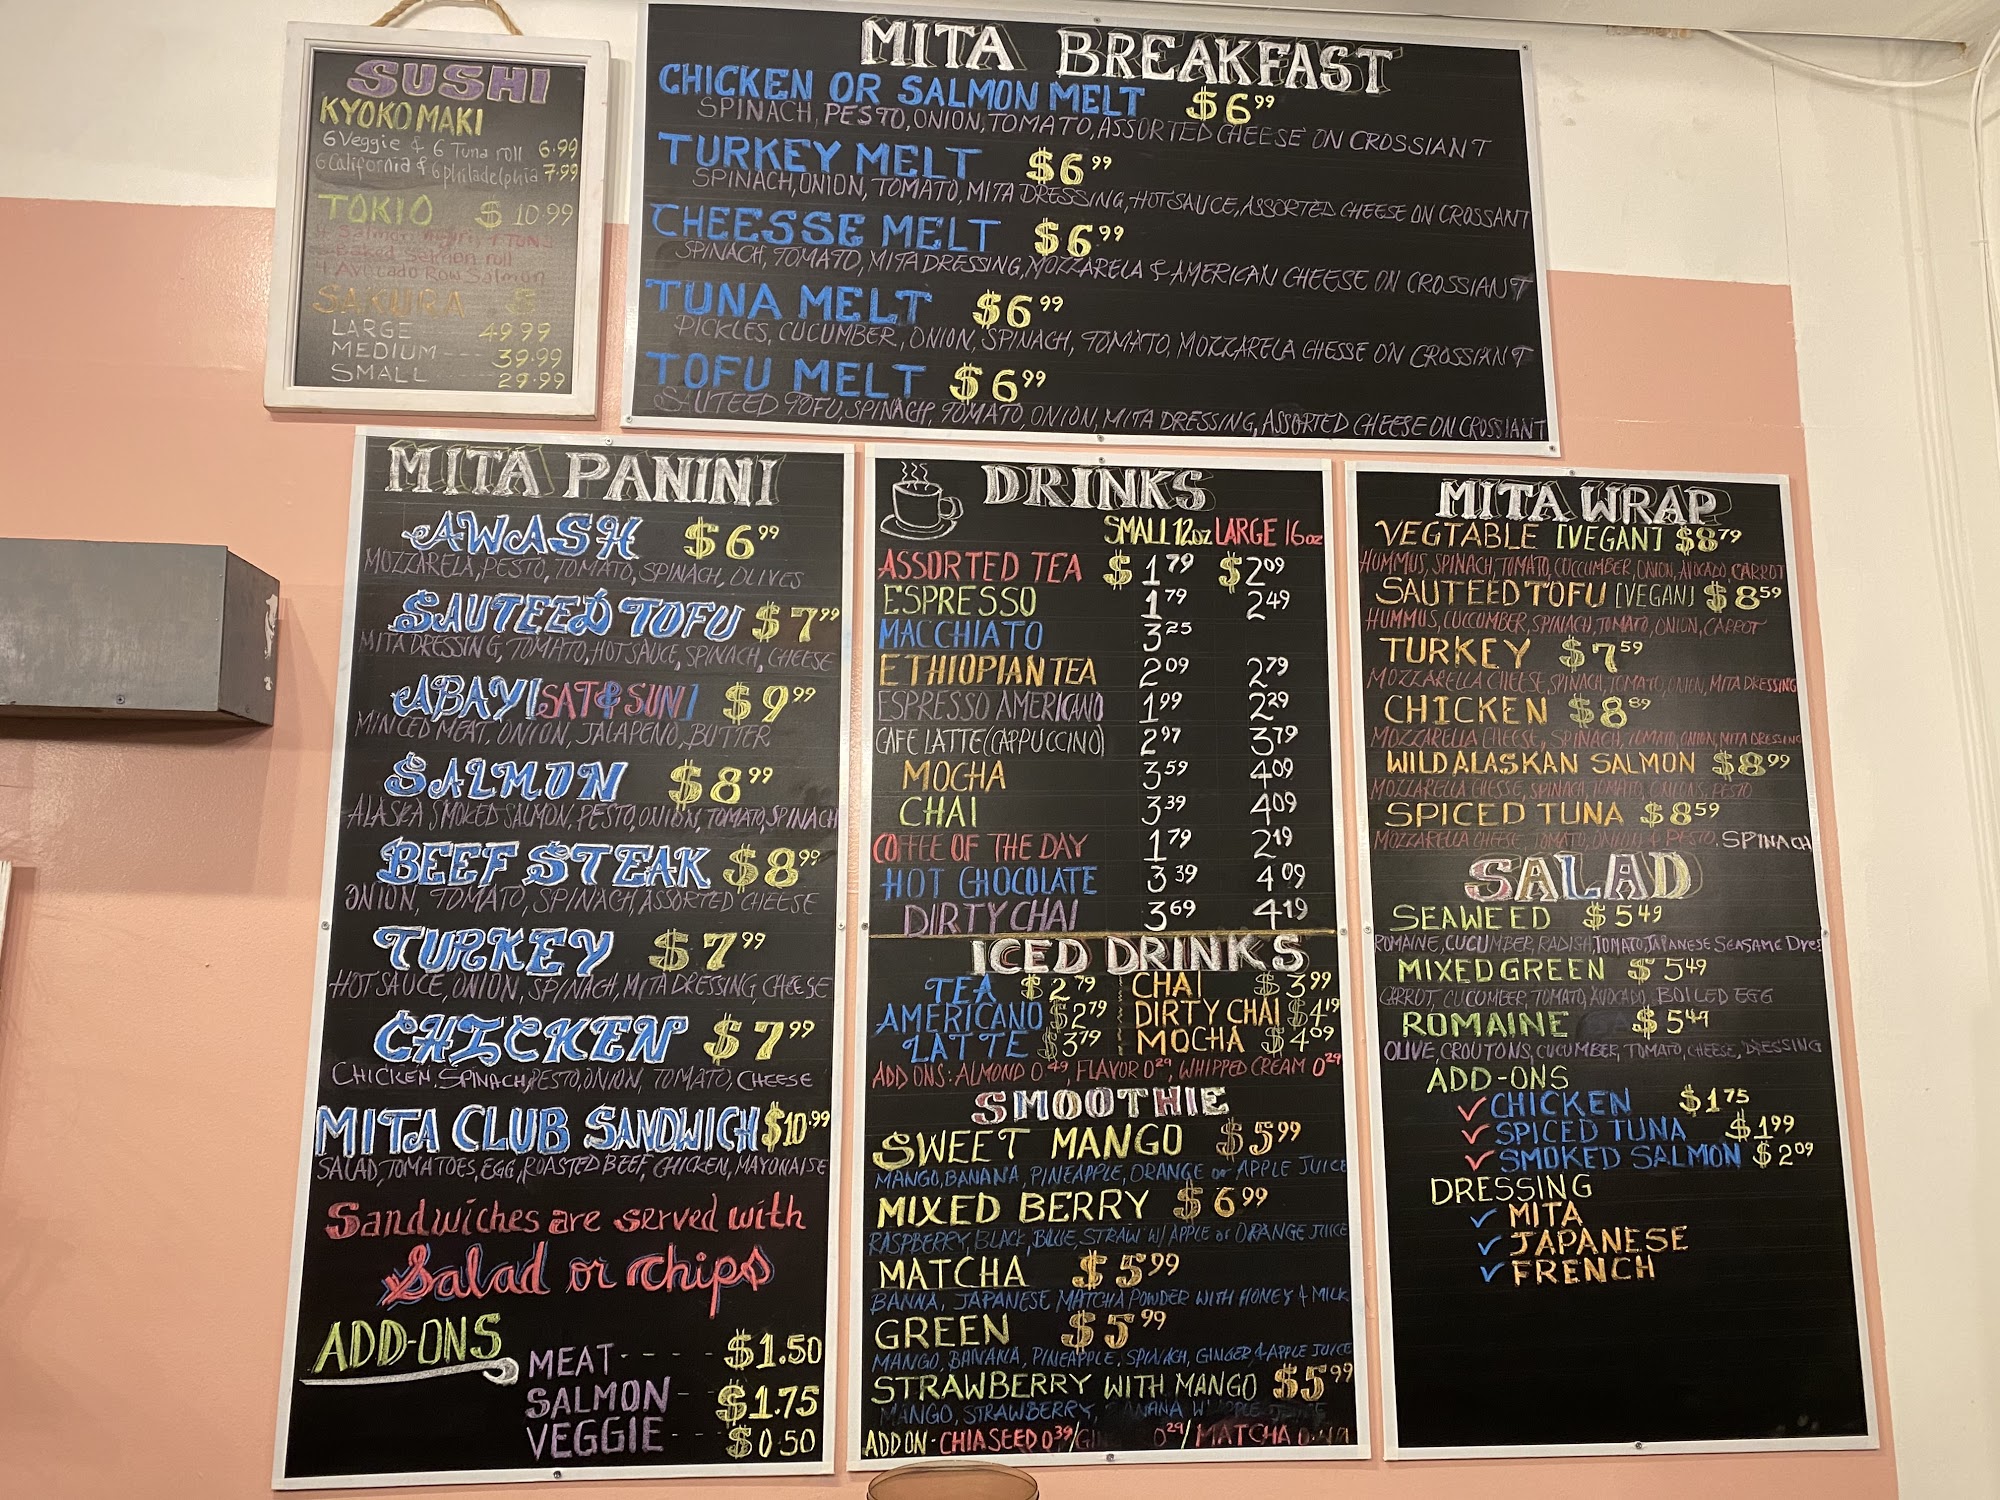 SUSHI
KYOKO MAKI
6 Veggie & 6 Tuna roll 6.99
6 California & 6 philadelphia 7.99
TOKIO $ 10.99
4 Salmon
Baked Salmon roll
4 Avocado Row Salmon
SAKURA $
LARGE 49.99
MEDIUM --- 39.99
SMALL 29.99
MITA BREAKFAST
CHICKEN OR SALMON MELT $6.99
SPINACH, PESTO, ONION, TOMATO, ASSORTED CHEESE ON CROSSIANT
TURKEY MELT $6.99
SPINACH, ONION, TOMATO, MITA DRESSING, HOT SAUCE, ASSORTED CHEESE ON CROSSANT
CHEESSE MELT $6.99
SPINACH, TOMATO, MITA DRESSING, MOZZARELA & AMERICAN CHEESE ON CROSSIANT
TUNA MELT $6.99
PICKLES, CUCUMBER, ONION, SPINACH, TOMATO, MOZZARELA CHESSE ON CROSSIANT
TOFU MELT $6.99
SAUTEED TOFU, SPINACH, TOMATO, ONION, MITA DRESSING, ASSORTED CHEESE ON CROSSIANT
MITA PANINI
AWASH $6.99
MOZZARELA, PESTO, TOMATO, SPINACH, OLIVES
SAUTEED TOFU $7.99
MITA DRESSING, TOMATO, HOT SAUCE, SPINACH, CHEESE
ABAYI [SAT & SUN] $9.99
MINCED MEAT, ONION, JALAPENO, BUTTER
SALMON $8.99
ALASKA SMOKED SALMON, PESTO, ONION, TOMATO, SPINACH
BEEF STEAK $8.99
ONION, TOMATO, SPINACH, ASSORTED CHEESE
TURKEY $7.99
HOT SAUCE, ONION, SPINACH, MITA DRESSING, CHEESE
CHICKEN $7.99
CHICKEN, SPINACH, PESTO, ONION, TOMATO, CHEESE
MITA CLUB SANDWICH $10.99
SALAD, TOMATOES, EGG, ROASTED BEEF, CHICKEN, MAYONAISE
Sandwiches are served with
Salad or Chips
ADD-ONS
MEAT ---- $1.50
SALMON -- $1.75
VEGGIE --- $0.50
DRINKS
SMALL 12oz LARGE 16oz
ASSORTED TEA $1.79 $2.09
ESPRESSO 1.79 2.49
MACCHIATO 3.25
ETHIOPIAN TEA 2.09 2.79
ESPRESSO AMERICANO 1.99 2.29
CAFE LATTE (CAPPUCCINO) 2.97 3.79
MOCHA 3.59 4.09
CHAI 3.39 4.09
COFFEE OF THE DAY 1.79 2.19
HOT CHOCOLATE 3.39 4.09
DIRTY CHAI 3.69 4.19
ICED DRINKS
TEA $2.79 CHAI $3.99
AMERICANO $2.79 DIRTY CHAI $4.19
LATTE $3.79 MOCHA $4.09
ADD ONS: ALMOND 0.49, FLAVOR 0.29, WHIPPED CREAM 0.29
SMOOTHIE
SWEET MANGO $5.99
MANGO, BANANA, PINEAPPLE, ORANGE or APPLE JUICE
MIXED BERRY $6.99
RASPBERRY, BLACK, BLUE, STRAW W/ APPLE or ORANGE JUICE
MATCHA $5.99
BANNA, JAPANESE MATCHA POWDER WITH HONEY & MILK
GREEN $5.99
MANGO, BANANA, PINEAPPLE, SPINACH, GINGER, & APPLE JUICE
STRAWBERRY WITH MANGO $5.99
MANGO, STRAWBERRY,
ADD ON - CHIA SEED 0.39/ 0.29/ MATCHA
MITA WRAP
VEGTABLE [VEGAN] $8.79
HUMMUS, SPINACH, TOMATO, CUCCUMBER, ONION, AVOCADO, CARROT
SAUTEED TOFU [VEGAN] $8.59
HUMMUS, CUCCUMBER, SPINACH, TOMATO, ONION, CARROT
TURKEY $7.59
MOZZARELLA CHEESE, SPINACH, TOMATO, ONION, MITA DRESSING
CHICKEN $8.89
MOZZARELLA CHEESE, SPINACH, TOMATO, ONION, MITA DRESSING
WILD ALASKAN SALMON $8.99
MOZZARELLA CHESSE, SPINACH, TOMATO, ONIONS, PESTO
SPICED TUNA $8.59
MOZZARELLA CHEESE, TOMATO, ONION & PESTO, SPINACH
SALAD
SEAWEED $5.49
ROMAINE, CUCUMBER, RADISH, TOMATO, JAPANESE SEASAME DRES
MIXED GREEN $5.49
CARROT, CUCUMBER, TOMATO, AVOCADO, BOILED EGG
ROMAINE $5.49
OLIVE, CROUTONS, CUCUMBER, TOMATO, CHEESE, DRESSING
ADD-ONS
✓ CHICKEN $1.75
✓ SPICED TUNA $1.99
✓ SMOKED SALMON $2.09
DRESSING
✓ MITA
✓ JAPANESE
✓ FRENCH